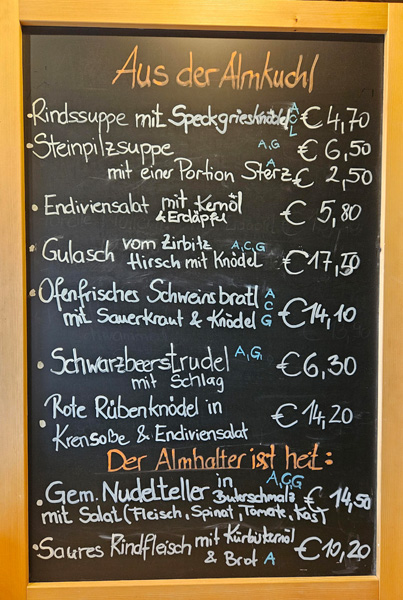 Aus der Almkuchl
• Rindssuppe mit Speckgriesknödel A C L € 4,70
• Steinpilzsuppe A,G € 6,50
mit einer Portion Sterz A € 2,50
• Endiviensalat mit Kernöl & Erdäpfel € 5,80
• Gulasch vom Zirbitz A,C,G
Hirsch mit Knödel € 17,50
• Ofenfrisches Schweinsbratl A C G
mit Sauerkraut & Knödel € 14,10
• Schwarzbeerstrudel A,G € 6,30
mit Schlag
• Rote Rübenknödel in € 14,20
Krensoße & Endiviensalat
Der Almhalter isst heit:
• Gem. Nudelteller in Butterschmalz A,C,G € 14,50
mit Salat (Fleisch, Spinat, Tomate, Kas)
• Saures Rindfleisch mit Kürbiskernöl
& Brot A € 10,20